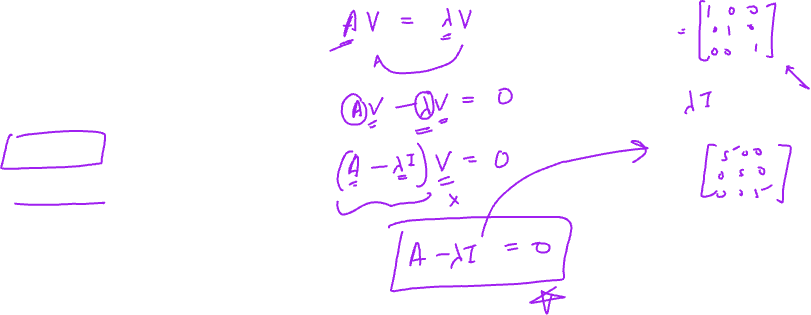 AV = λV
AV - λV = 0
(A - λI) V = 0
x
A - λI = 0
= [1 0 0
0 1 0
0 0 1]
λI
[5 0 0
0 5 0
0 0 5]